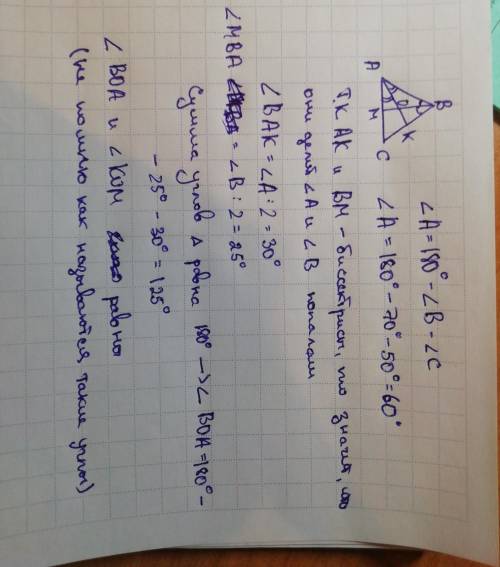 B
A
O
K
M
C
∠A = 180° - ∠B - ∠C
∠A = 180° - 70° - 50° = 60°
Т.К АК и ВМ – биссектрисы, то значит, что
они делят ∠А и ∠В пополам
∠BAK = ∠A : 2 = 30°
∠MBA = ∠B : 2 = 25°
Сумма углов Δ равна 180° -> ∠ BOA = 180° -
- 25° - 30° = 125°
∠ BOA и ∠KOM равны
(не помню как называются такие углы)